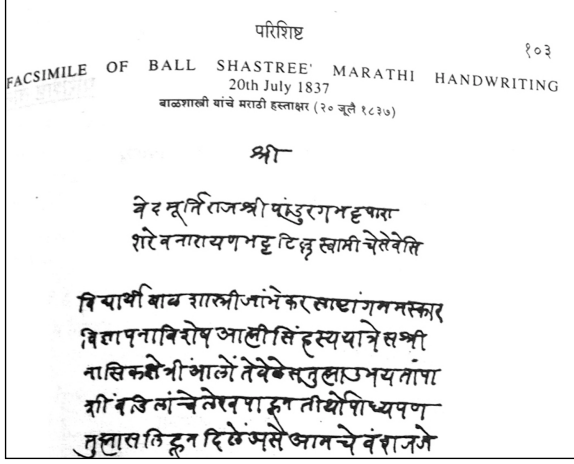 परिशिष्ट
१०३
FACSIMILE OF BALL SHASTREE' MARATHI HANDWRITING
20th July 1837
बाळशास्त्री यांचे मराठी हस्ताक्षर (२० जूलै १८३७)
श्री
वेदमूर्ति राजश्री पांडुरंगभट्ट पारा
शरे व नारायणभट्ट टिल्लू स्वामीचे सेवेसि
विद्यार्थी बाळशास्त्री जांभेकर साष्टांग नमस्कार
विज्ञापना विशेष आम्ही सिंहस्थ यात्रेस श्री
नासिकक्षेत्रीं आलों ते वेळेस तुम्हा उभयतांपा
शीं वडिलांचे लेख पाहून तीर्थोपाध्यपण
तुम्हास लिहून दिलें असे आमचे वंशज जे